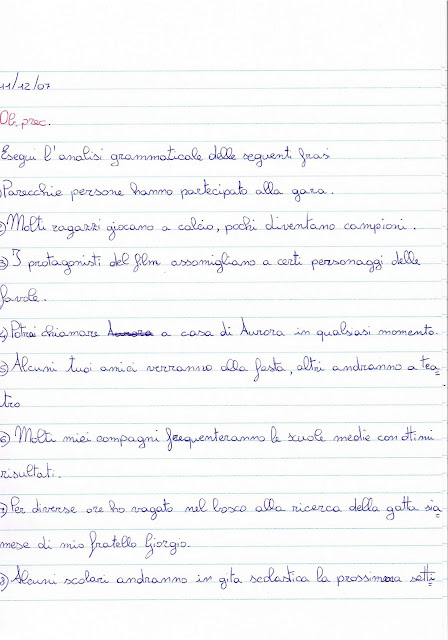 11/12/07
Ob. prec.
Esegui l'analisi grammaticale delle seguenti frasi
)Parecchie persone hanno partecipato alla gara.
2)Molti ragazzi giocano a calcio, pochi diventano campioni.
3) I protagonisti del film assomigliano a certi personaggi delle
favole.
4)Potrai chiamare Aurora a casa di Aurora in qualsasi momento.
5)Alcuni tuoi amici verranno alla festa, altri andranno a tea=
tro
6) Molti miei compagni frequenteranno le scuole medie con ottimi
risultati.
7)Per diverse ore ho vagato nel bosco alla ricerca della gatta sia
mese di mio fratello Giorgio.
8)Alcuni scolari andranno in gita scolastica la prossima setti=